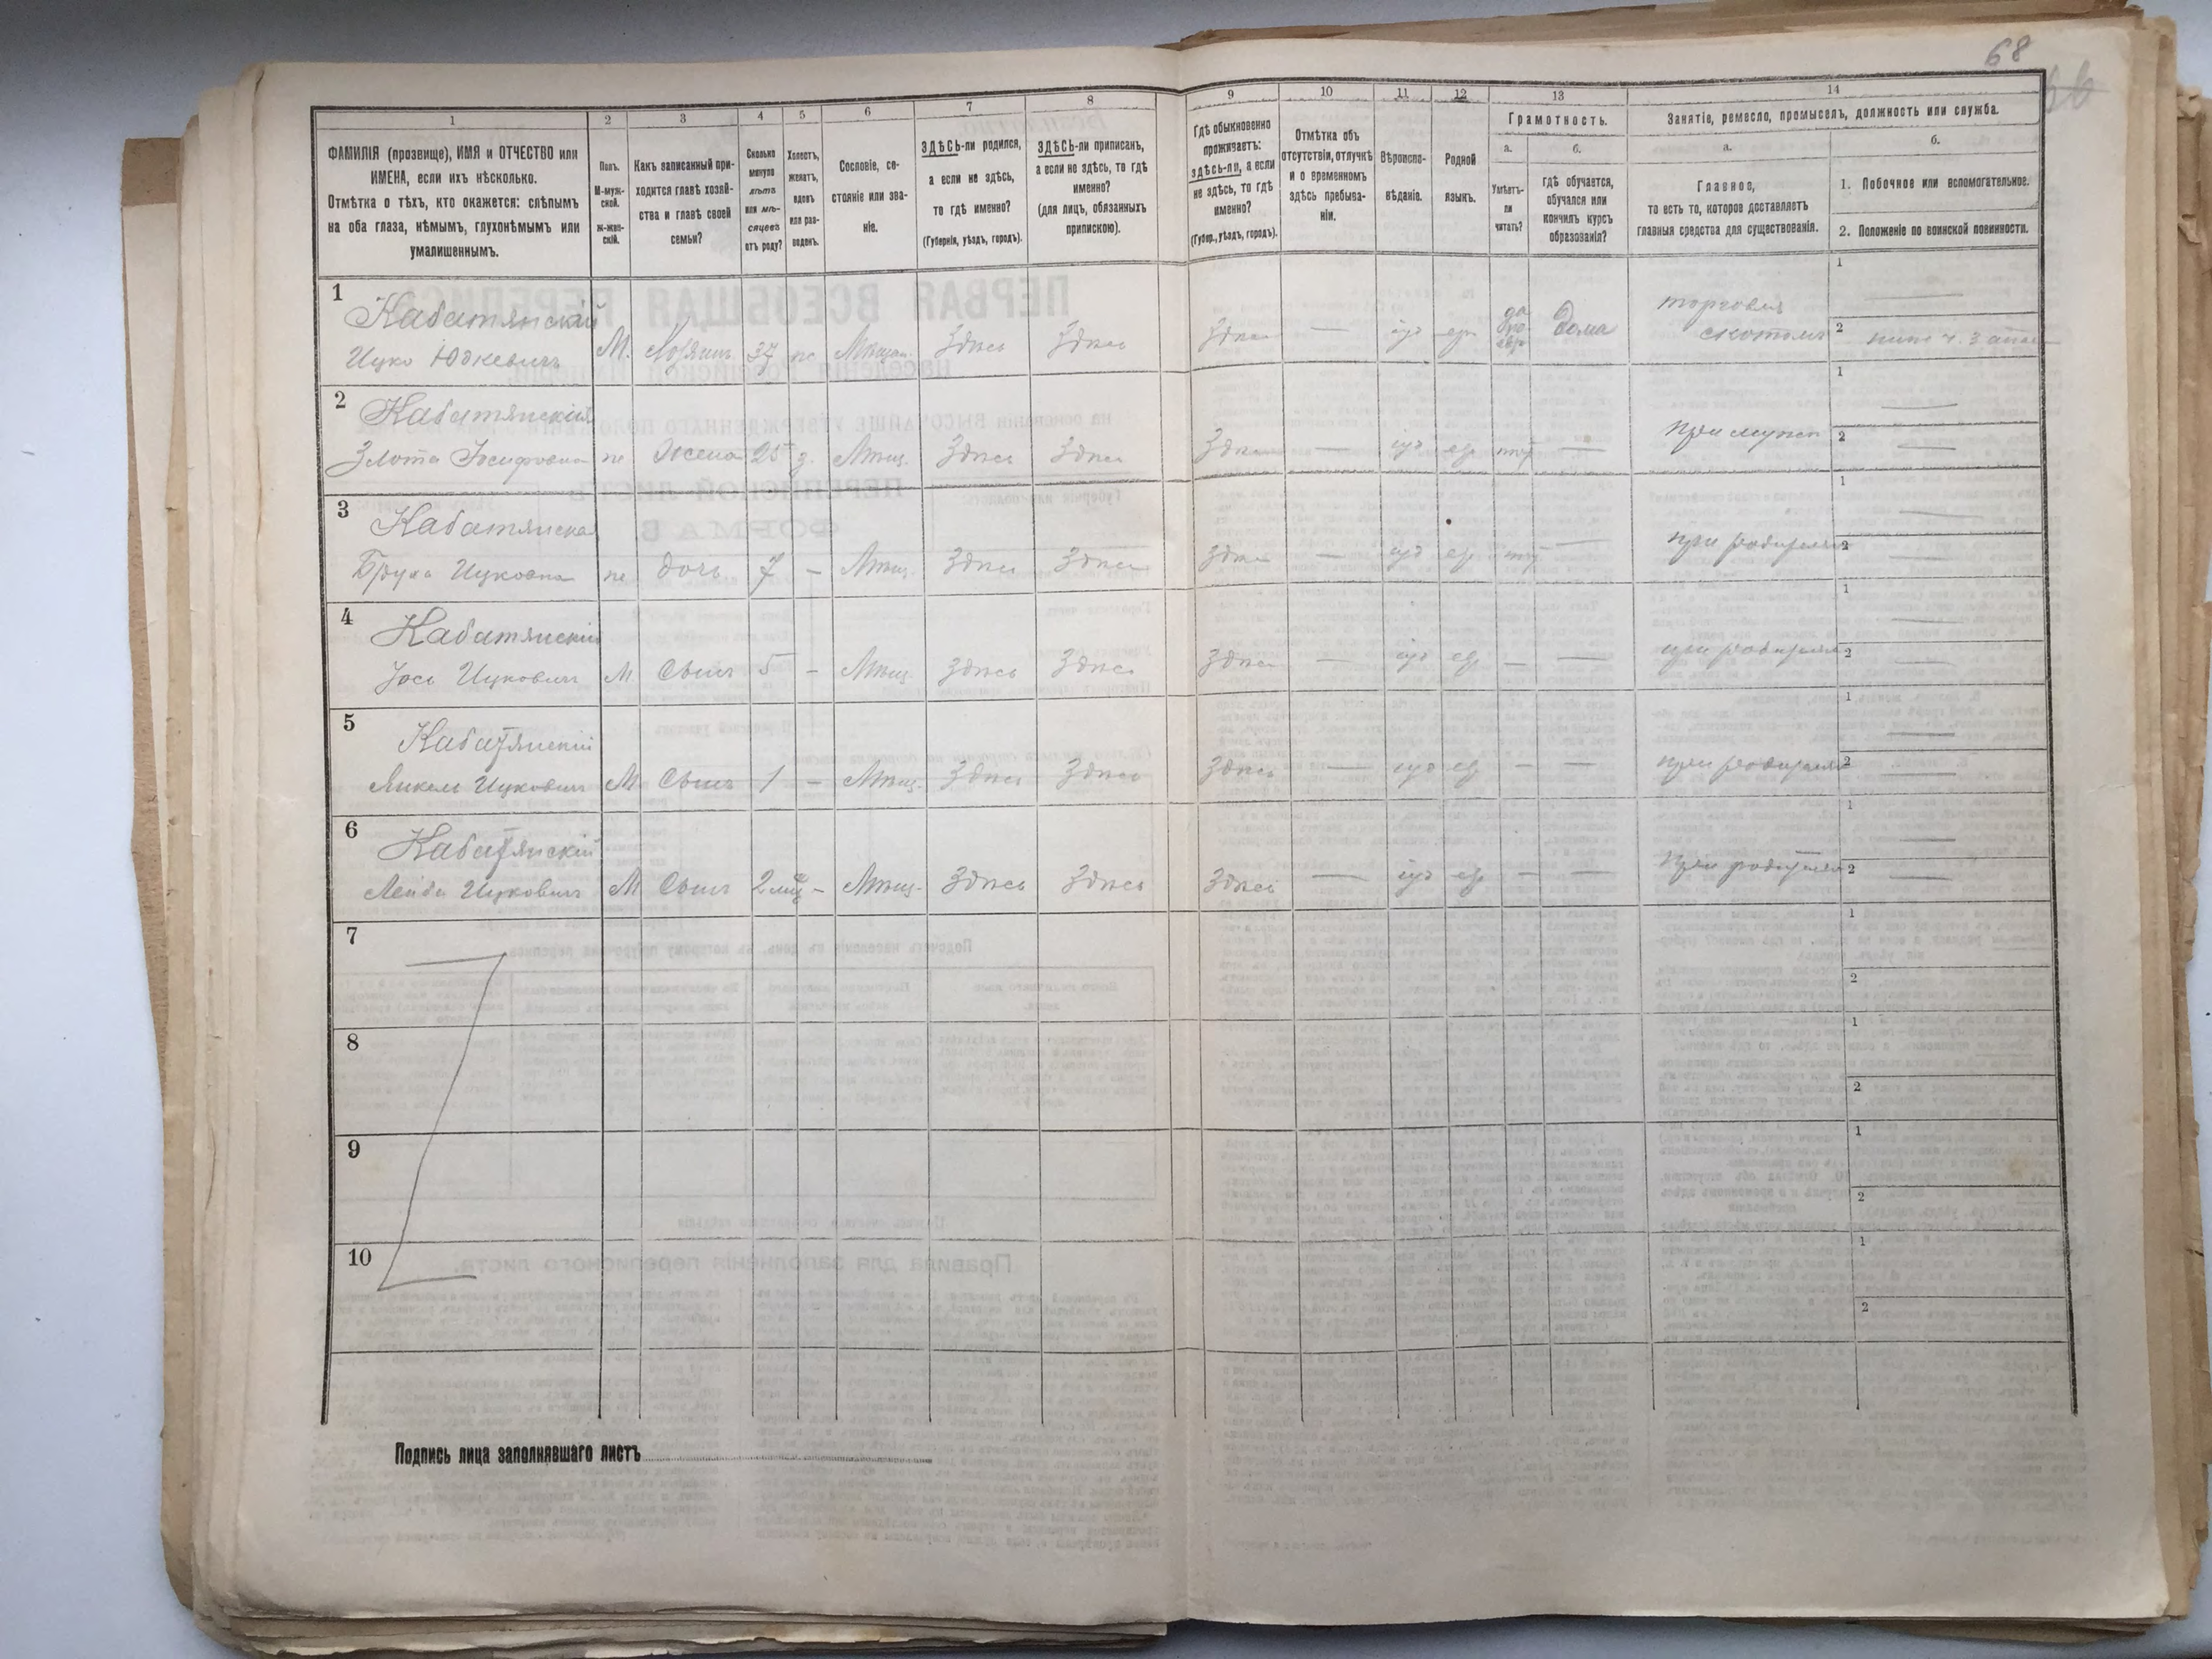 68
1
2
3
4
5
6
7
8
9
10
11
12
13
14
ФАМИЛІЯ (прозвище), ИМЯ и ОТЧЕСТВО или
ИМЕНА, если ихъ нѣсколько.
Отмѣтка о тѣхъ, кто окажется: слѣпымъ
на оба глаза, нѣмымъ, глухонѣмымъ или
умалишеннымъ.
Полъ.
М-муж-
ской.
Ж-жен-
скій.
Какъ записанный при-
ходится главѣ хозяй-
ства и главѣ своей
семьи?
Сколько
минуло
лѣтъ
или мѣ-
сяцевъ
отъ роду?
Холостъ,
женатъ,
вдовъ
или раз-
веденъ.
Сословіе, со-
стояніе или зва-
ніе.
ЗДѢСЬ-ли родился,
а если не здѣсь,
то гдѣ именно?
(Губернія, уѣздъ, городъ).
ЗДѢСЬ-ли приписанъ,
а если не здѣсь, то гдѣ
именно?
(для лицъ, обязанныхъ
припискою).
Гдѣ обыкновенно
проживаетъ:
здѣсь-ли, а если
не здѣсь, то гдѣ
именно?
(Губер., уѣздъ, городъ).
Отмѣтка объ
отсутствіи, отлучкѣ
и о временномъ
здѣсь пребыва-
ніи.
Вѣроиспо-
вѣданіе.
Родной
языкъ.
Грамотность.
а.
Умѣетъ-
ли
читать?
б.
гдѣ обучается,
обучался или
кончилъ курсъ
образованія?
Занятіе, ремесло, промыселъ, должность или служба.
а.
Главное,
то есть то, которое доставляетъ
главныя средства для существованія.
б.
1. Побочное или вспомогательное.
2. Положеніе по воинской повинности.
1 Кабатянскій
Ицко Юдкевичъ М. Хозяинъ 37 Мѣщан. Здѣсь Здѣсь Здѣсь — іуд евр да Дома торговля
скотомъ
2 Кабатянскія
Злота Іосифовна Жена 25 з. Мѣщ. Здѣсь Здѣсь Здѣсь — іуд евр нѣт — при мужѣ
3 Кабатянская
Бруха Ицковна дочь 7 – Мѣщ. Здѣсь Здѣсь Здѣсь — іуд евр нѣт — при родителях
4 Кабатянскій
Іось Ицковичъ М Сынъ 5 – Мѣщ. Здѣсь Здѣсь Здѣсь — іуд евр — — при родителях
5 Кабатянскій
Янкель Ицковичъ М Сынъ 1 – Мѣщ. Здѣсь Здѣсь Здѣсь — іуд евр – — при родителях
6 Кабатянскій
Лейба Ицковичъ М Сынъ 2 мѣс – Мѣщ. Здѣсь Здѣсь Здѣсь — іуд евр – — при родителях
7
8
9
10
Подпись лица заполнявшаго листъ